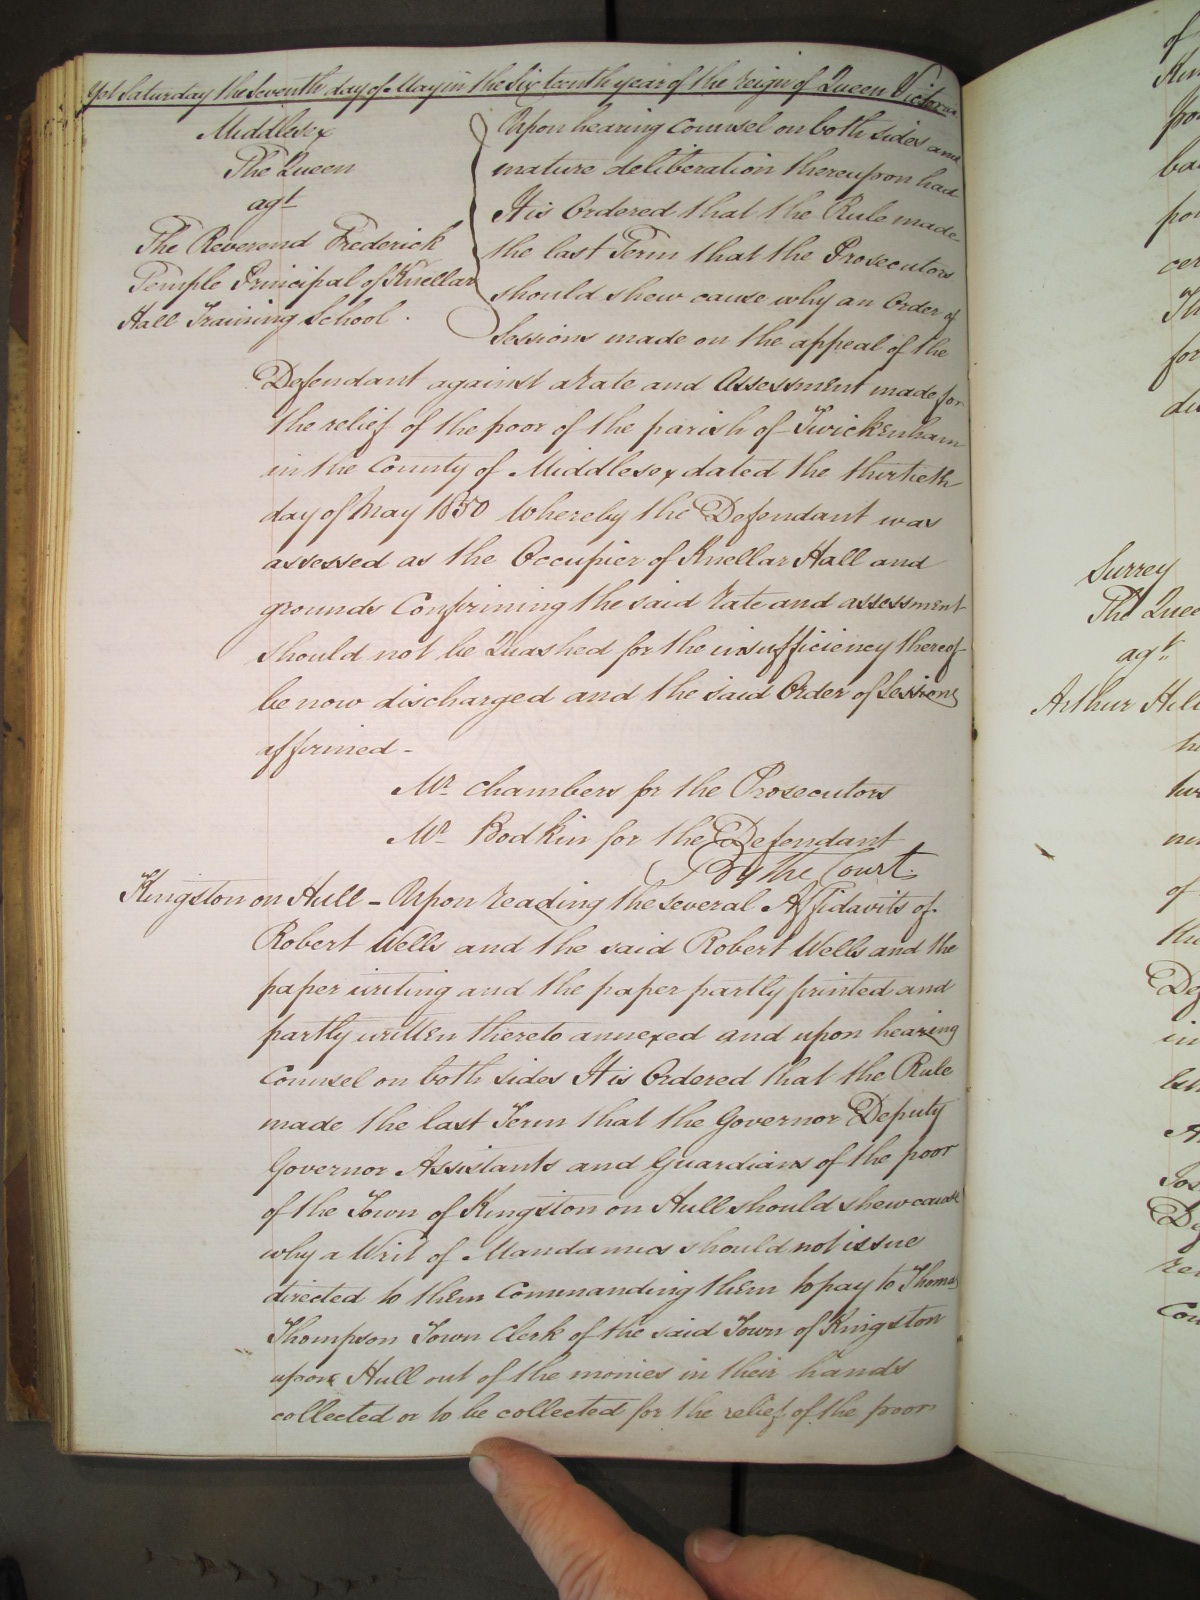 Yet Saturday the Seventh day of May in the Sixteenth year of the reign of Queen Victoria
Middlesex
The Queen
agt
The Reverend Frederick
Temple Principal of Knellar
Hall Training School.
Upon hearing Counsel on both sides and
mature deliberation thereupon had
It is Ordered that the Rule made
the last Term that the Prosecutors
should shew cause why an Order of
Sessions made on the appeal of the
Defendant against a Rate and Assessment made for
the relief of the poor of the parish of Twickenham
in the County of Middlesex dated the thirtieth
day of May 1850 whereby the Defendant was
assessed as the Occupier of Knellar Hall and
grounds Confirming the said Rate and assessment
should not be Quashed for the insufficiency thereof
be now discharged and the said Order of Sessions
affirmed -
Mr Chambers for the Prosecutors
Mr Bodkin for the Defendant
By the Court.
Kingston on Hull - Upon reading the several Affidavits of
Robert Wells and the said Robert Wells and the
paper writing and the paper partly printed and
partly written thereto annexed and upon hearing
Counsel on both sides It is Ordered that the Rule
made the last Term that the Governor Deputy
Governor Assistants and Guardians of the poor
of the Town of Kingston on Hull should shew cause
why a Writ of Mandamus should not issue
directed to them Commanding them to pay to Thomas
Thompson Town Clerk of the said Town of Kingston
upon Hull out of the monies in their hands
collected or to be collected for the relief of the poor
Surrey
The Queen
agt
Arthur